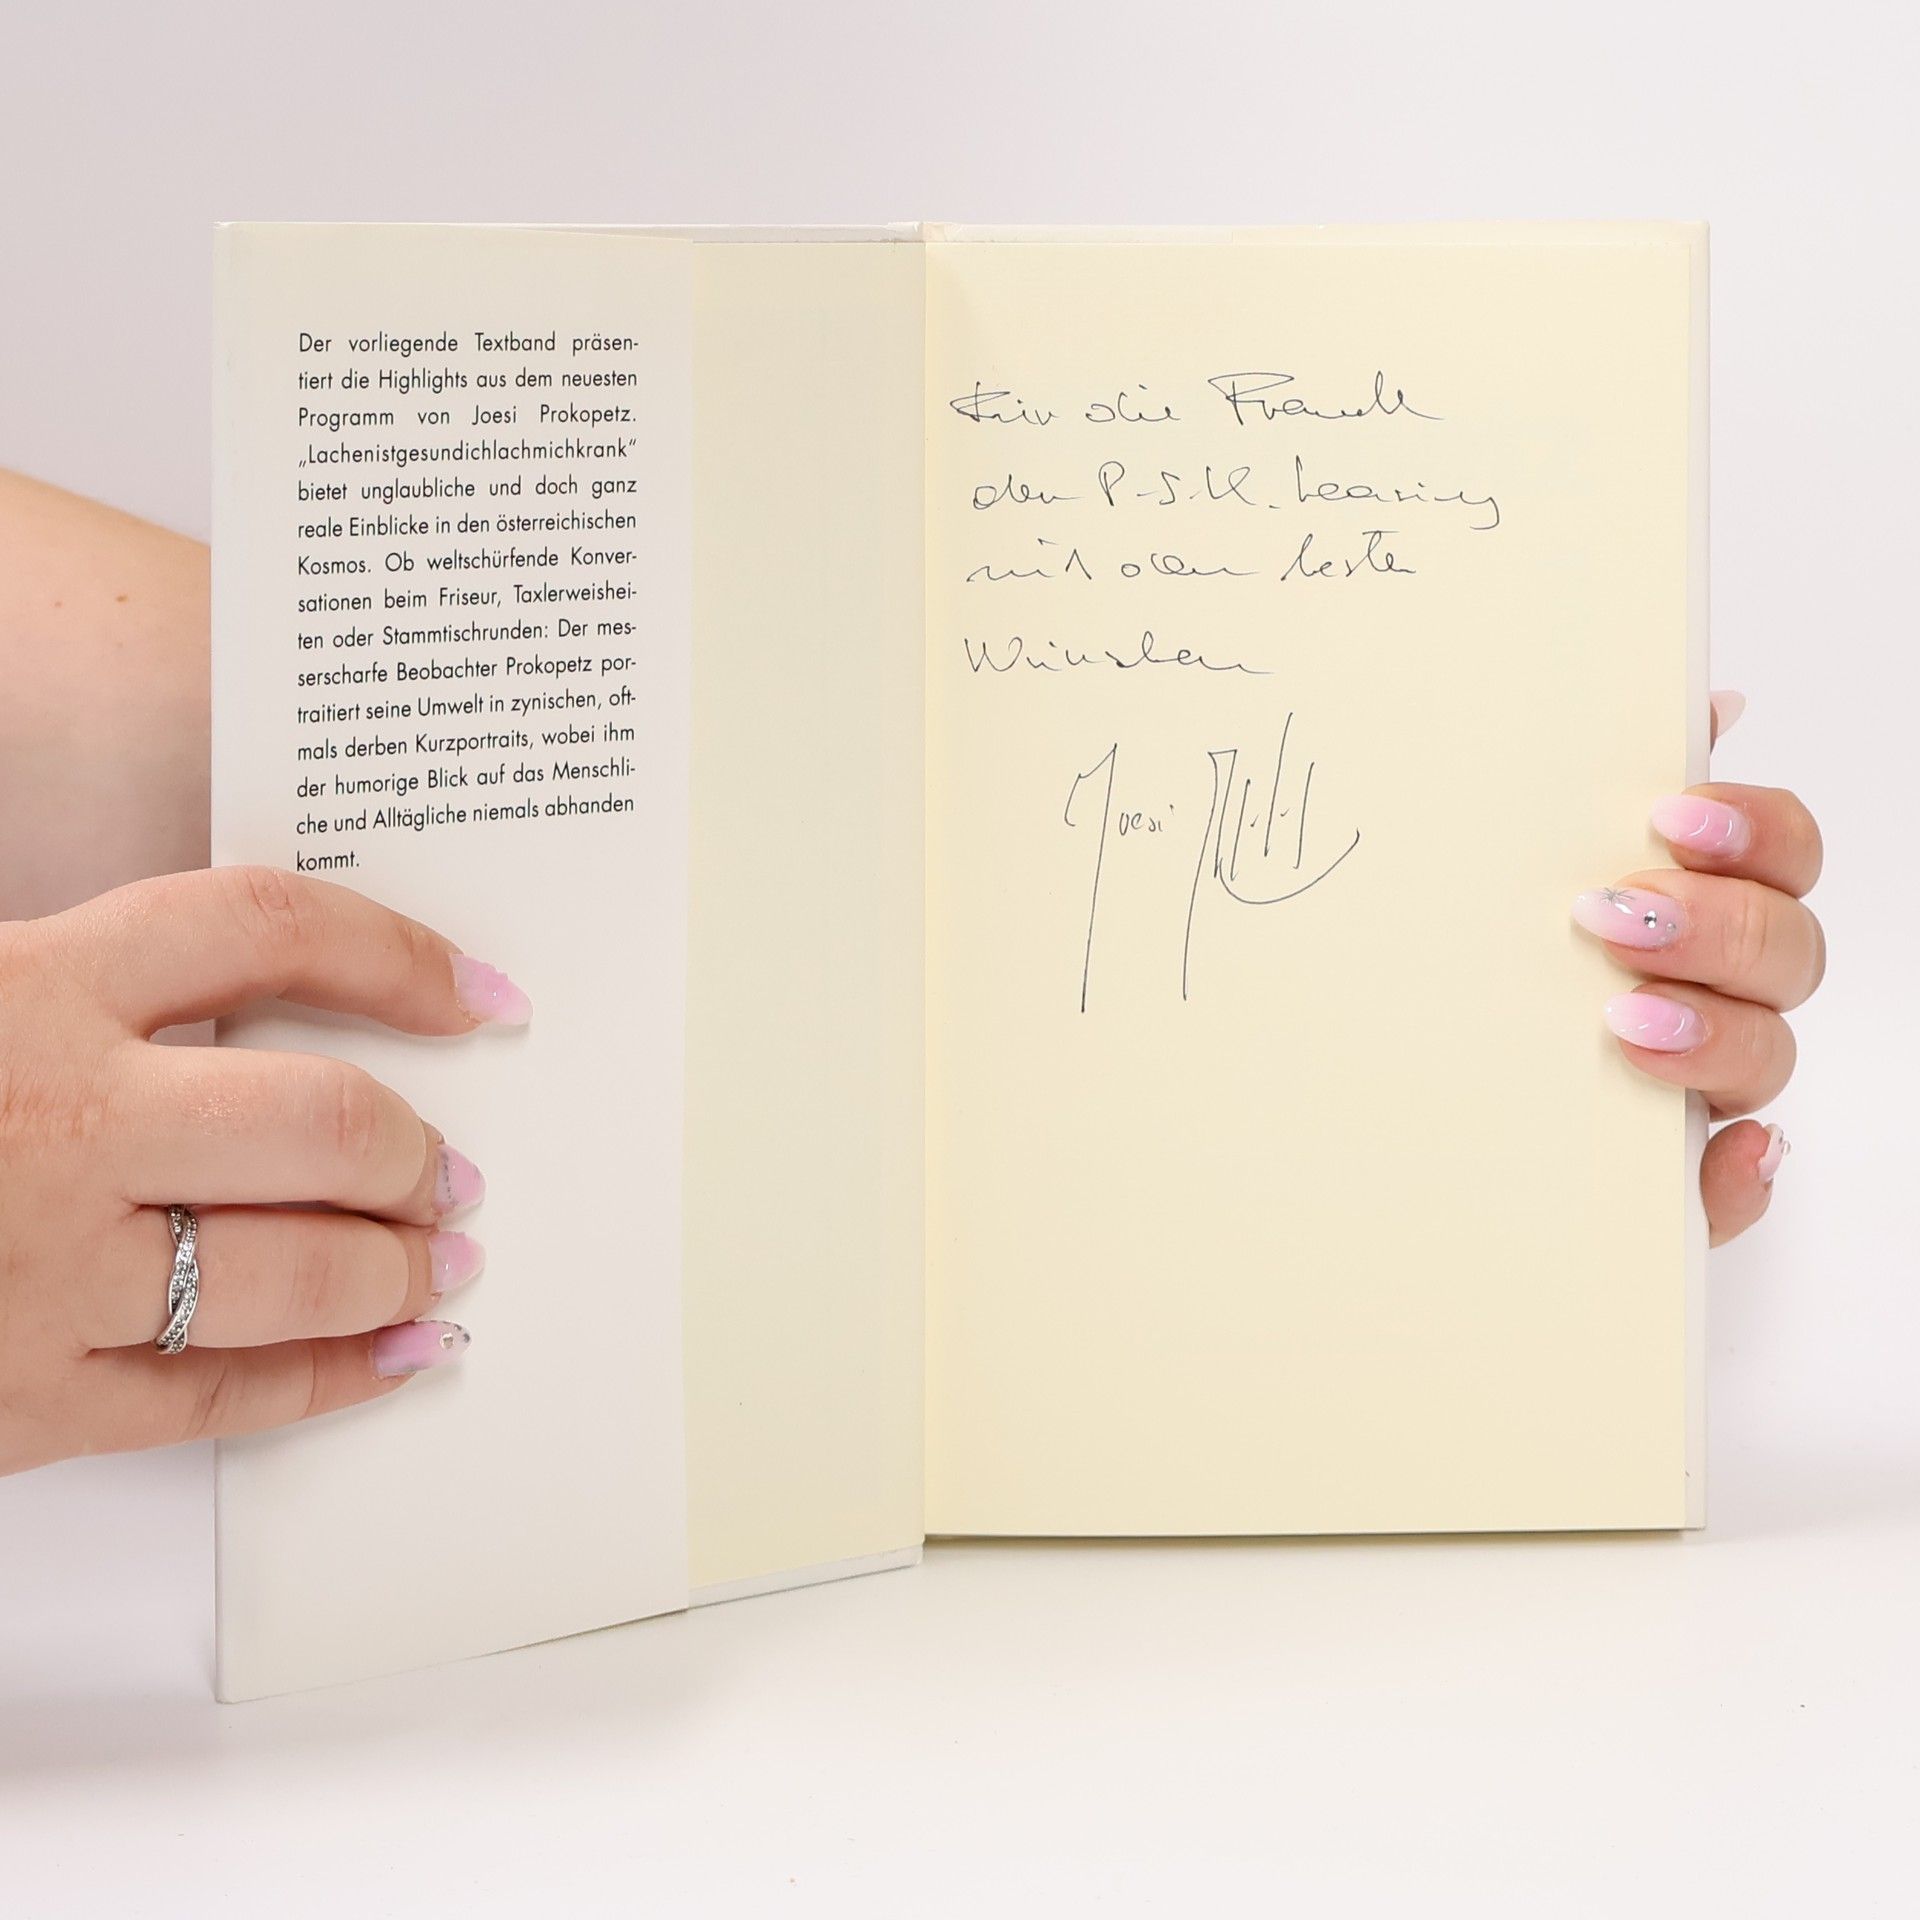 Der vorliegende Textband präsen-
tiert die Highlights aus dem neuesten
Programm von Joesi Prokopetz.
„Lachenistgesundichlachmichkrank“
bietet unglaubliche und doch ganz
reale Einblicke in den österreichischen
Kosmos. Ob weltschürfende Konver-
sationen beim Friseur, Taxlerweishei-
ten oder Stammtischrunden: Der mes-
serscharfe Beobachter Prokopetz por-
traitiert seine Umwelt in zynischen, oft-
mals derben Kurzportraits, wobei ihm
der humorige Blick auf das Menschli-
che und Alltägliche niemals abhanden
kommt.
Für die Freunde
der P.S.K. Leasing
mit den besten
Wünschen
Joesi